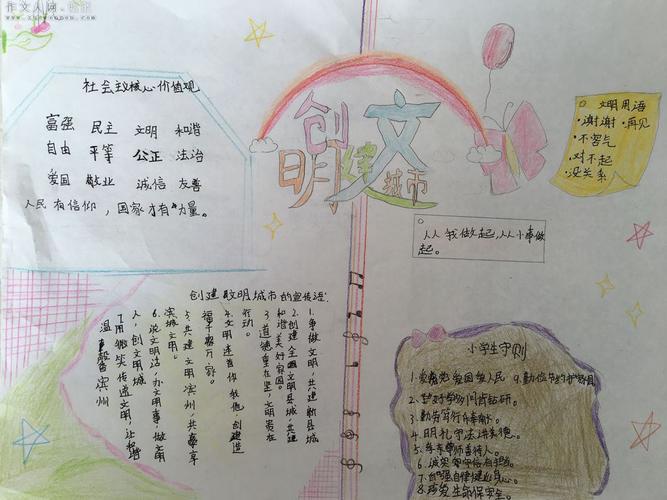 作文人网
社会主义核心价值观
富强 民主 文明 和谐
自由 平等 公正 法治
爱国 敬业 诚信 友善
人民有信仰,国家才有力量。
创建文明城市
文明用语
·谢谢 ·再见
·不客气
·对不起
·没关系
从我做起,从小事做
起。
创建文明城市的宣传语:
1.争做文明,共建新县城
2.创建全国文明县城,共建
和谐美好家园。
3.道德重在坚,文明贵在
行动。
4.文明连着你我他,创建造
福千家万家。
5.共建文明滨州,共享
滨城文明。
6.说文明话,办文明事,做文明
人,创文明城
7.用微笑传递文明,让和谐
温馨滨州
小学生守则
1.爱党爱国爱人民
2.好学多问肯钻研。
3.勤劳笃行乐奉献。
4.明礼守法讲美德。
5.孝亲尊师善待人。
6.诚实守信有
7.自强自律健身心。
8.珍爱生命保安全。
9.勤俭节约护家园